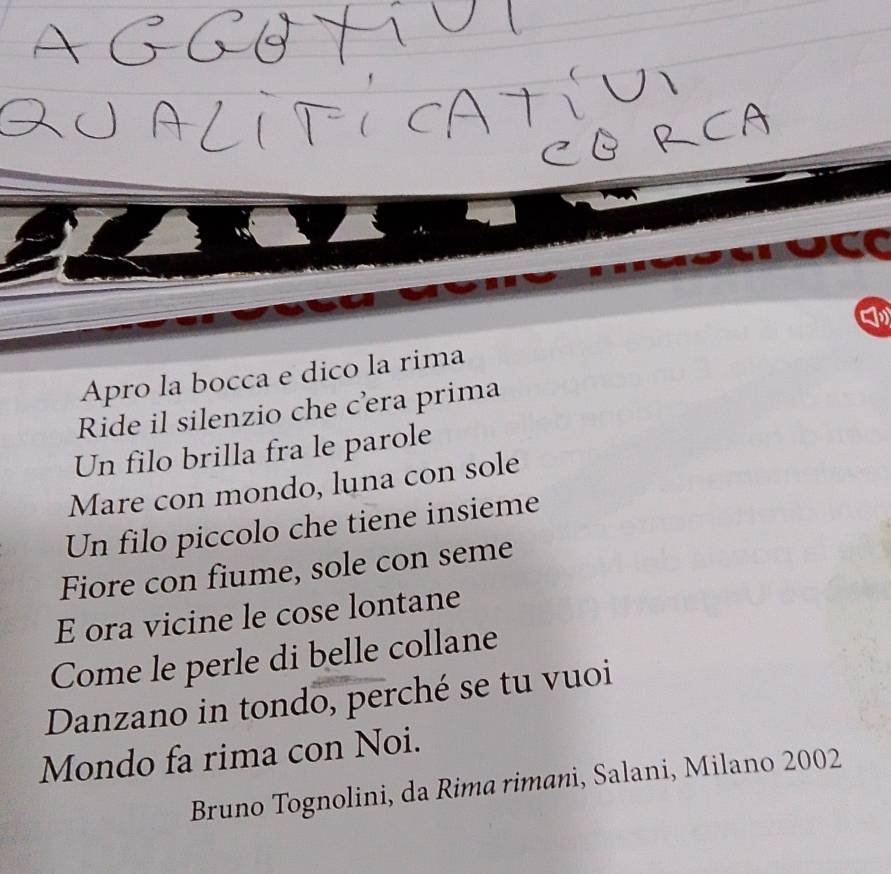 AGGETTIVI
QUALIFICATIVI
CERCA
Apro la bocca e dico la rima
Ride il silenzio che c'era prima
Un filo brilla fra le parole
Mare con mondo, luna con sole
Un filo piccolo che tiene insieme
Fiore con fiume, sole con seme
E ora vicine le cose lontane
Come le perle di belle collane
Danzano in tondo, perché se tu vuoi
Mondo fa rima con Noi.
Bruno Tognolini, da Rima rimani, Salani, Milano 2002